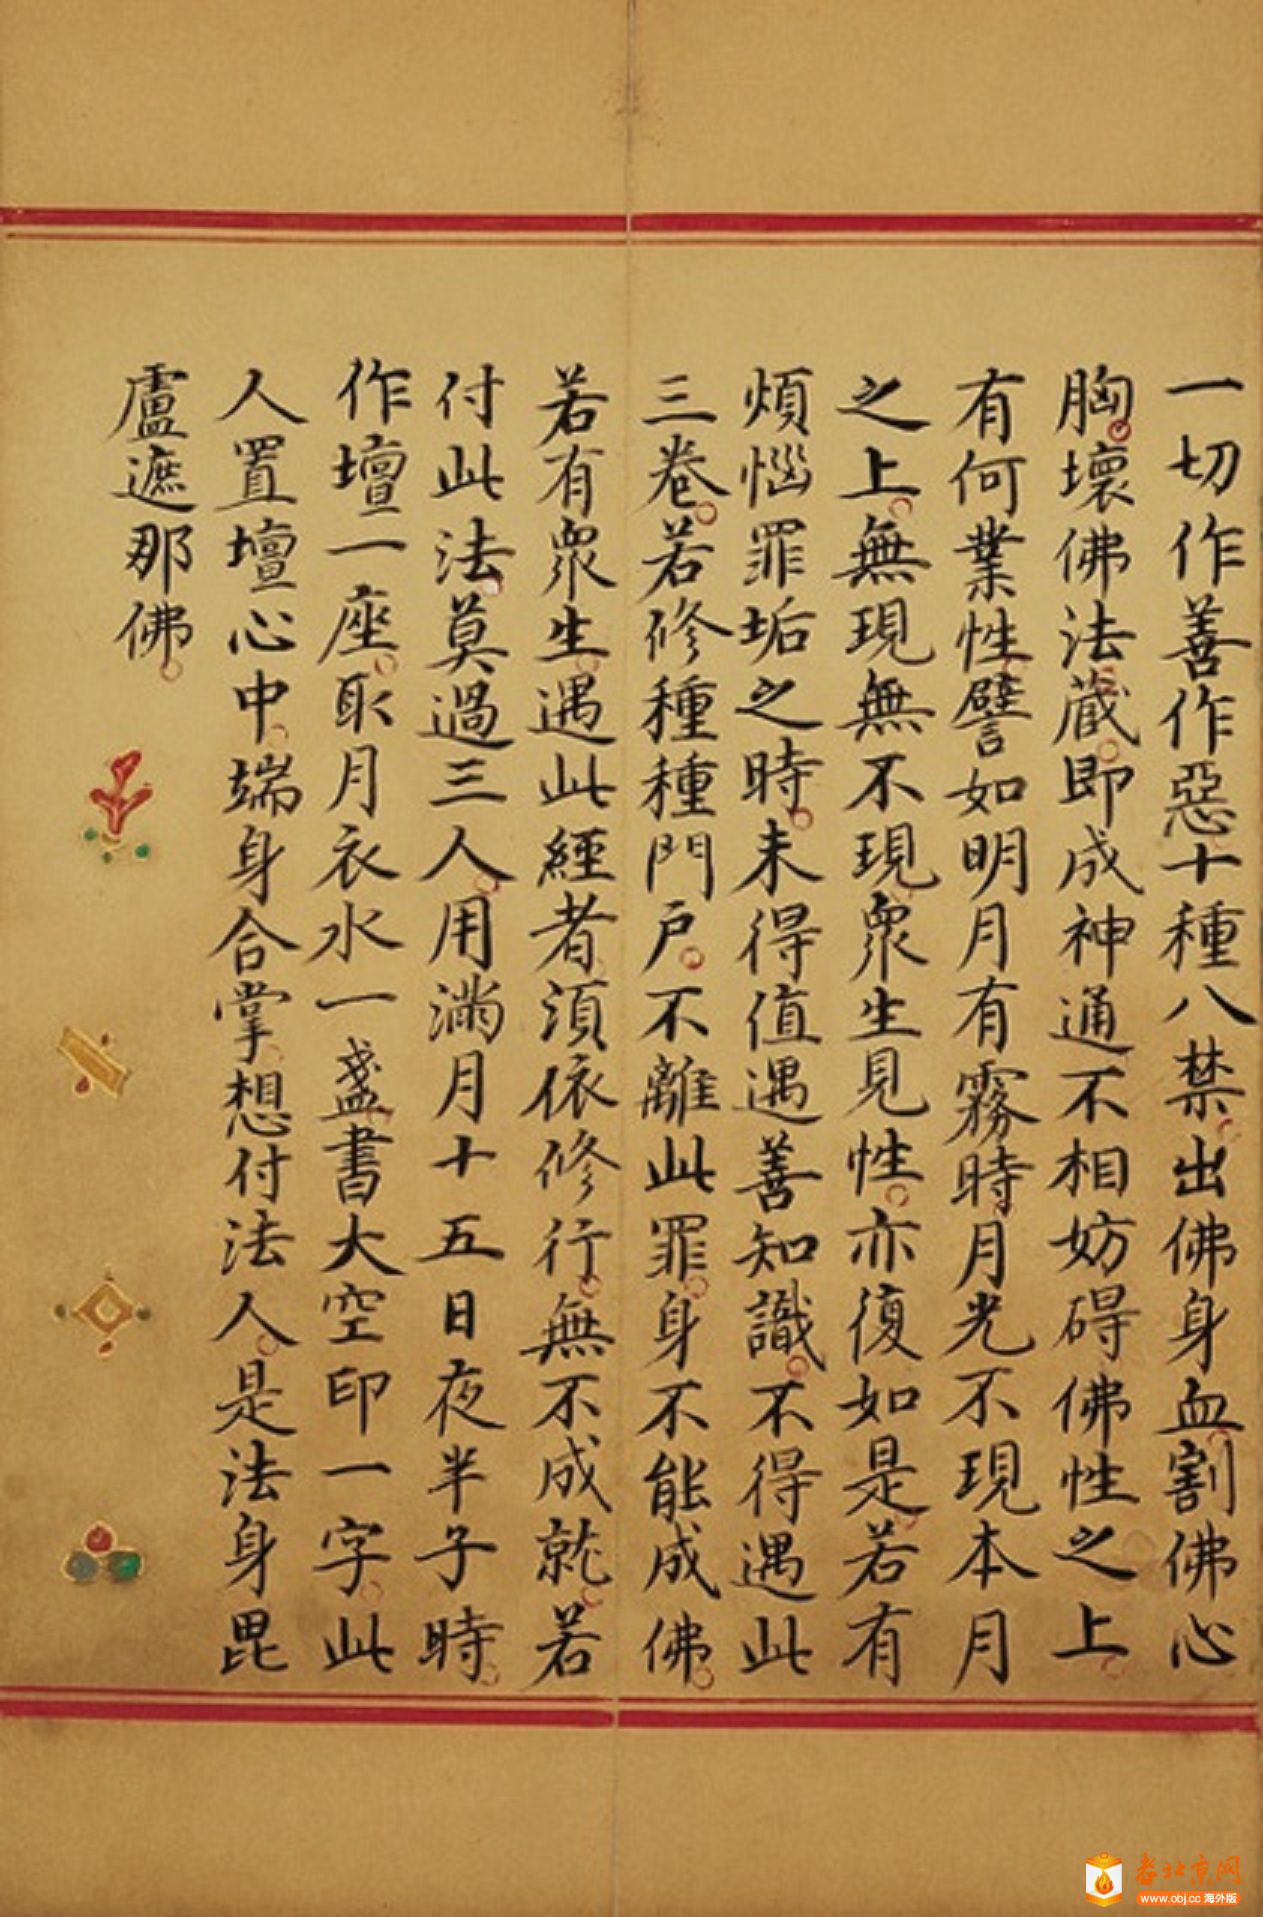 一切作善作惡十種八禁出佛身血割佛心
胸壞佛法藏即成神通不相妨碍佛性之上
有何業性譬如明月有霧時月光不現本月
之上無現無不現眾生見性亦復如是若有
煩惱罪垢之時未得值遇善知識不得遇此
三卷若修種種門戶不離此罪身不能成佛
若有眾生遇此經者須依修行無不成就若
付此法莫過三人用滿月十五日夜半子時
作壇一座取月衣水一盞書大空印一字此
人置壇心中端身合掌想付法人是法身毘
盧遮那佛
老北京网
www.obj.cc 海外版